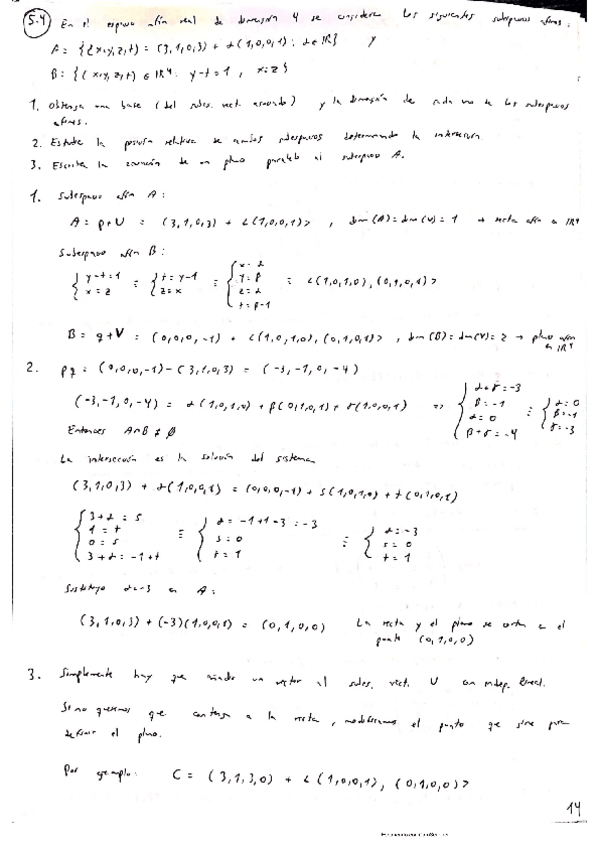 5.4 En el espacio afín real de dimensión 4 se consideran los siguientes subespacios afines:
A = {(x,y,z,t) = (3,1,0,3) + α(1,0,0,1) : α∈ℝ} y
B = {(x,y,z,t) ∈ ℝ⁴ : y-t=1, x=z}
1. Obtenga una base (del subes. vect. asociado) y la dimensión de cada uno de los subespacios
afines.
2. Estudie la posición relativa de ambos subespacios determinando la intersección
3. Escriba la ecuación de un plano paralelo al subespacio A.
1. Subespacio afín A:
A = p+U = (3,1,0,3) + L<(1,0,0,1)>, dim(A) = dim(U) = 1 → recta afín en ℝ⁴
Subespacio afín B:
{ y-t=1 ≡ { t=y-1 ≡ { x=α ≡ L<(1,0,1,0), (0,1,0,1)>
x=z z=x y=β
z=α
t=β-1
B = q+V = (0,0,0,-1) + L<(1,0,1,0), (0,1,0,1)>, dim(B) = dim(V) = 2 → plano afín
en ℝ⁴
2. pq = (0,0,0,-1) - (3,1,0,3) = (-3,-1,0,-4)
(-3,-1,0,-4) = α(1,0,1,0) + β(0,1,0,1) + γ(1,0,0,1) => { α+γ=-3 ≡ { α=0
β=-1 β=-1
α=0 γ=-3
β+γ=-4
Entonces A∩B ≠ ∅
La intersección es la solución del sistema
(3,1,0,3) + α(1,0,0,1) = (0,0,0,-1) + s(1,0,1,0) + t(0,1,0,1)
{ 3+α=s ≡ { α=-1+1-3=-3 ≡ { α=-3
1=t s=0 s=0
0=s t=1 t=1
3+α=-1+t
Sustituyo α=-3 en A:
(3,1,0,3) + (-3)(1,0,0,1) = (0,1,0,0) La recta y el plano se cortan en el
punto (0,1,0,0)
3. Simplemente hay que añadir un vector al subes. vect. U con indep. lineal.
Si no queremos que contenga a la recta, modificamos el punto que sirve para
definir el plano.
Por ejemplo: C = (3,1,3,0) + L<(1,0,0,1), (0,1,0,0)>
14